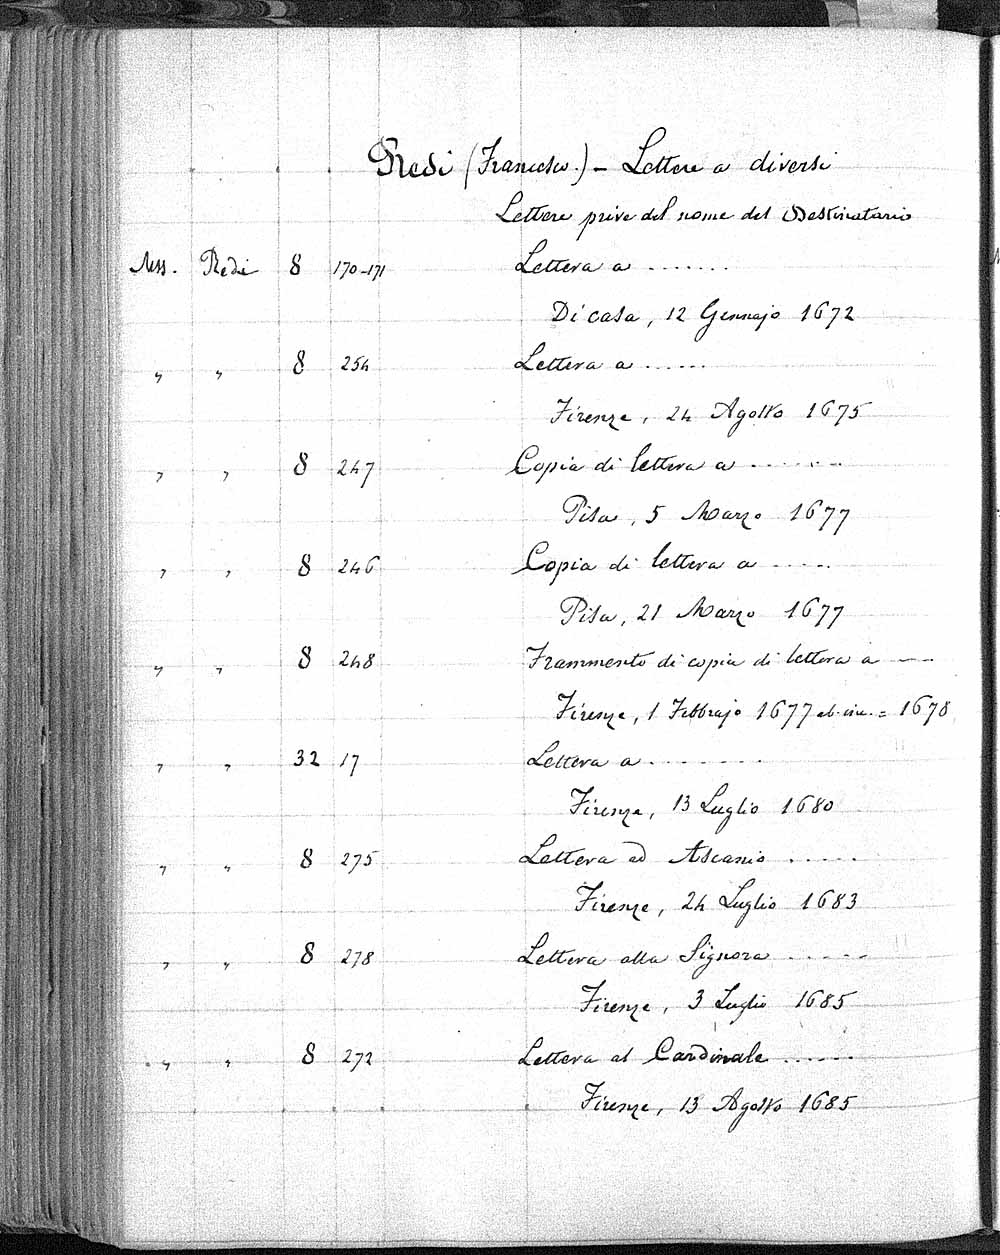 Redi (Francesco.) - Lettere a diversi
Lettere prive del nome del Destinatario
Mss. Redi 8 170-171 Lettera a .......
Di casa, 12 Gennajo 1672
" " 8 254 Lettera a ......
Firenze, 24 Agosto 1675
" " 8 247 Copia di lettera a .......
Pisa, 5 Marzo 1677
" " 8 246 Copia di lettera a .....
Pisa, 21 Marzo 1677
" " 8 248 Frammento di copia di lettera a ....
Firenze, 1 Febbrajo 1677 ab. inc. = 1678
" " 32 17 Lettera a ........
Firenze, 13 Luglio 1680
" " 8 275 Lettera ad Ascanio .....
Firenze, 24 Luglio 1683
" " 8 278 Lettera alla Signora ......
Firenze, 3 Luglio 1685
" " 8 272 Lettera al Cardinale ......
Firenze, 13 Agosto 1685